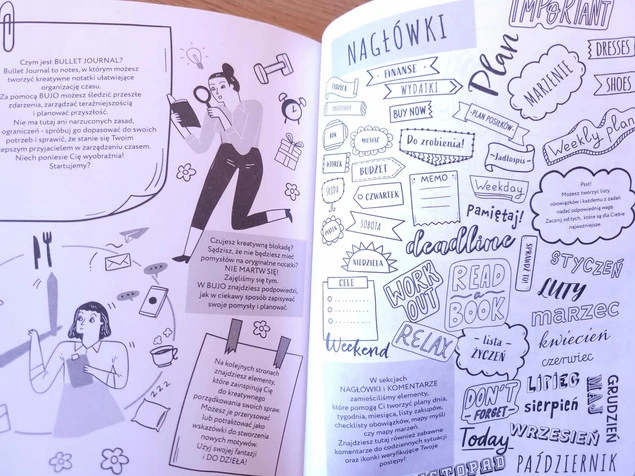 Czym jest BULLET JOURNAL?
Bullet Journal to notes, w którym możesz
tworzyć kreatywne notatki ułatwiające
organizację czasu.
Za pomocą BUJO możesz śledzić przeszłe
zdarzenia, zarządzać teraźniejszością
i planować przyszłość.
Nie ma tutaj ani narzuconych zasad,
ograniczeń - spróbuj go dopasować do swoich
potrzeb i sprawić, że stanie się Twoim
lepszym przyjacielem w zarządzaniu czasem.
Niech poniesie Cię wyobraźnia!
Startujemy?
Czujesz kreatywną blokadę?
Sądzisz, że nie będziesz mieć
pomysłów na oryginalne notatki?
NIE MARTW SIĘ!
Zajęliśmy się tym.
W BUJO znajdziesz podpowiedzi,
jak w ciekawy sposób zapisywać
swoje pomysły i planować.
Na kolejnych stronach
znajdziesz elementy,
które zainspirują Cię
do kreatywnego
porządkowania swoich spraw.
Możesz je przerysować
lub potraktować jako
wskazówki do stworzenia
nowych motywów.
Użyj swojej fantazji
i DO DZIEŁA!
zzz
NAGŁÓWKI
IMPORTANT
Plan
MARZENIE
DRESSES
SHOES
FINANSE
WYDATKI
BUY NOW
PLAN POSIŁKÓW
Weekly plan
MIESIĄC
Do zrobienia!
Jadłospis
WTOREK
BUDŻET
MEMO
Weekday
Psst!
Możesz tworzyć listy
obowiązków i każdemu z zadań
nadać odpowiednią wagę.
Zacznij od tych, które są dla Ciebie
najważniejsze.
ŚRODA
CZWARTEK
Pamiętaj!
PIĄTEK
SOBOTA
deadline
NIEDZIELA
SPRAWDŹ TO!
STYCZEŃ
CELE
WORK
OUT
READ
a
BOOK
LUTY
marzec
Weekend
RELAX
lista
ŻYCZEŃ
kwiecień
czerwiec
W sekcjach
NAGŁÓWKI i KOMENTARZE
zamieściliśmy elementy,
które pomogą Ci tworzyć plany dnia,
tygodnia, miesiąca, listy zakupów,
checklisty obowiązków, mapy myśli
czy mapy marzeń.
Znajdziesz tutaj również zabawne
komentarze do codziennych sytuacji
oraz ikonki weryfikujące Twoje
postępy!
DON'T
FORGET
LIPIEC
MAJ
GRUDZIEŃ
sierpień
Today
WRZESIEŃ
LISTOPAD
PAŹDZIERNIK